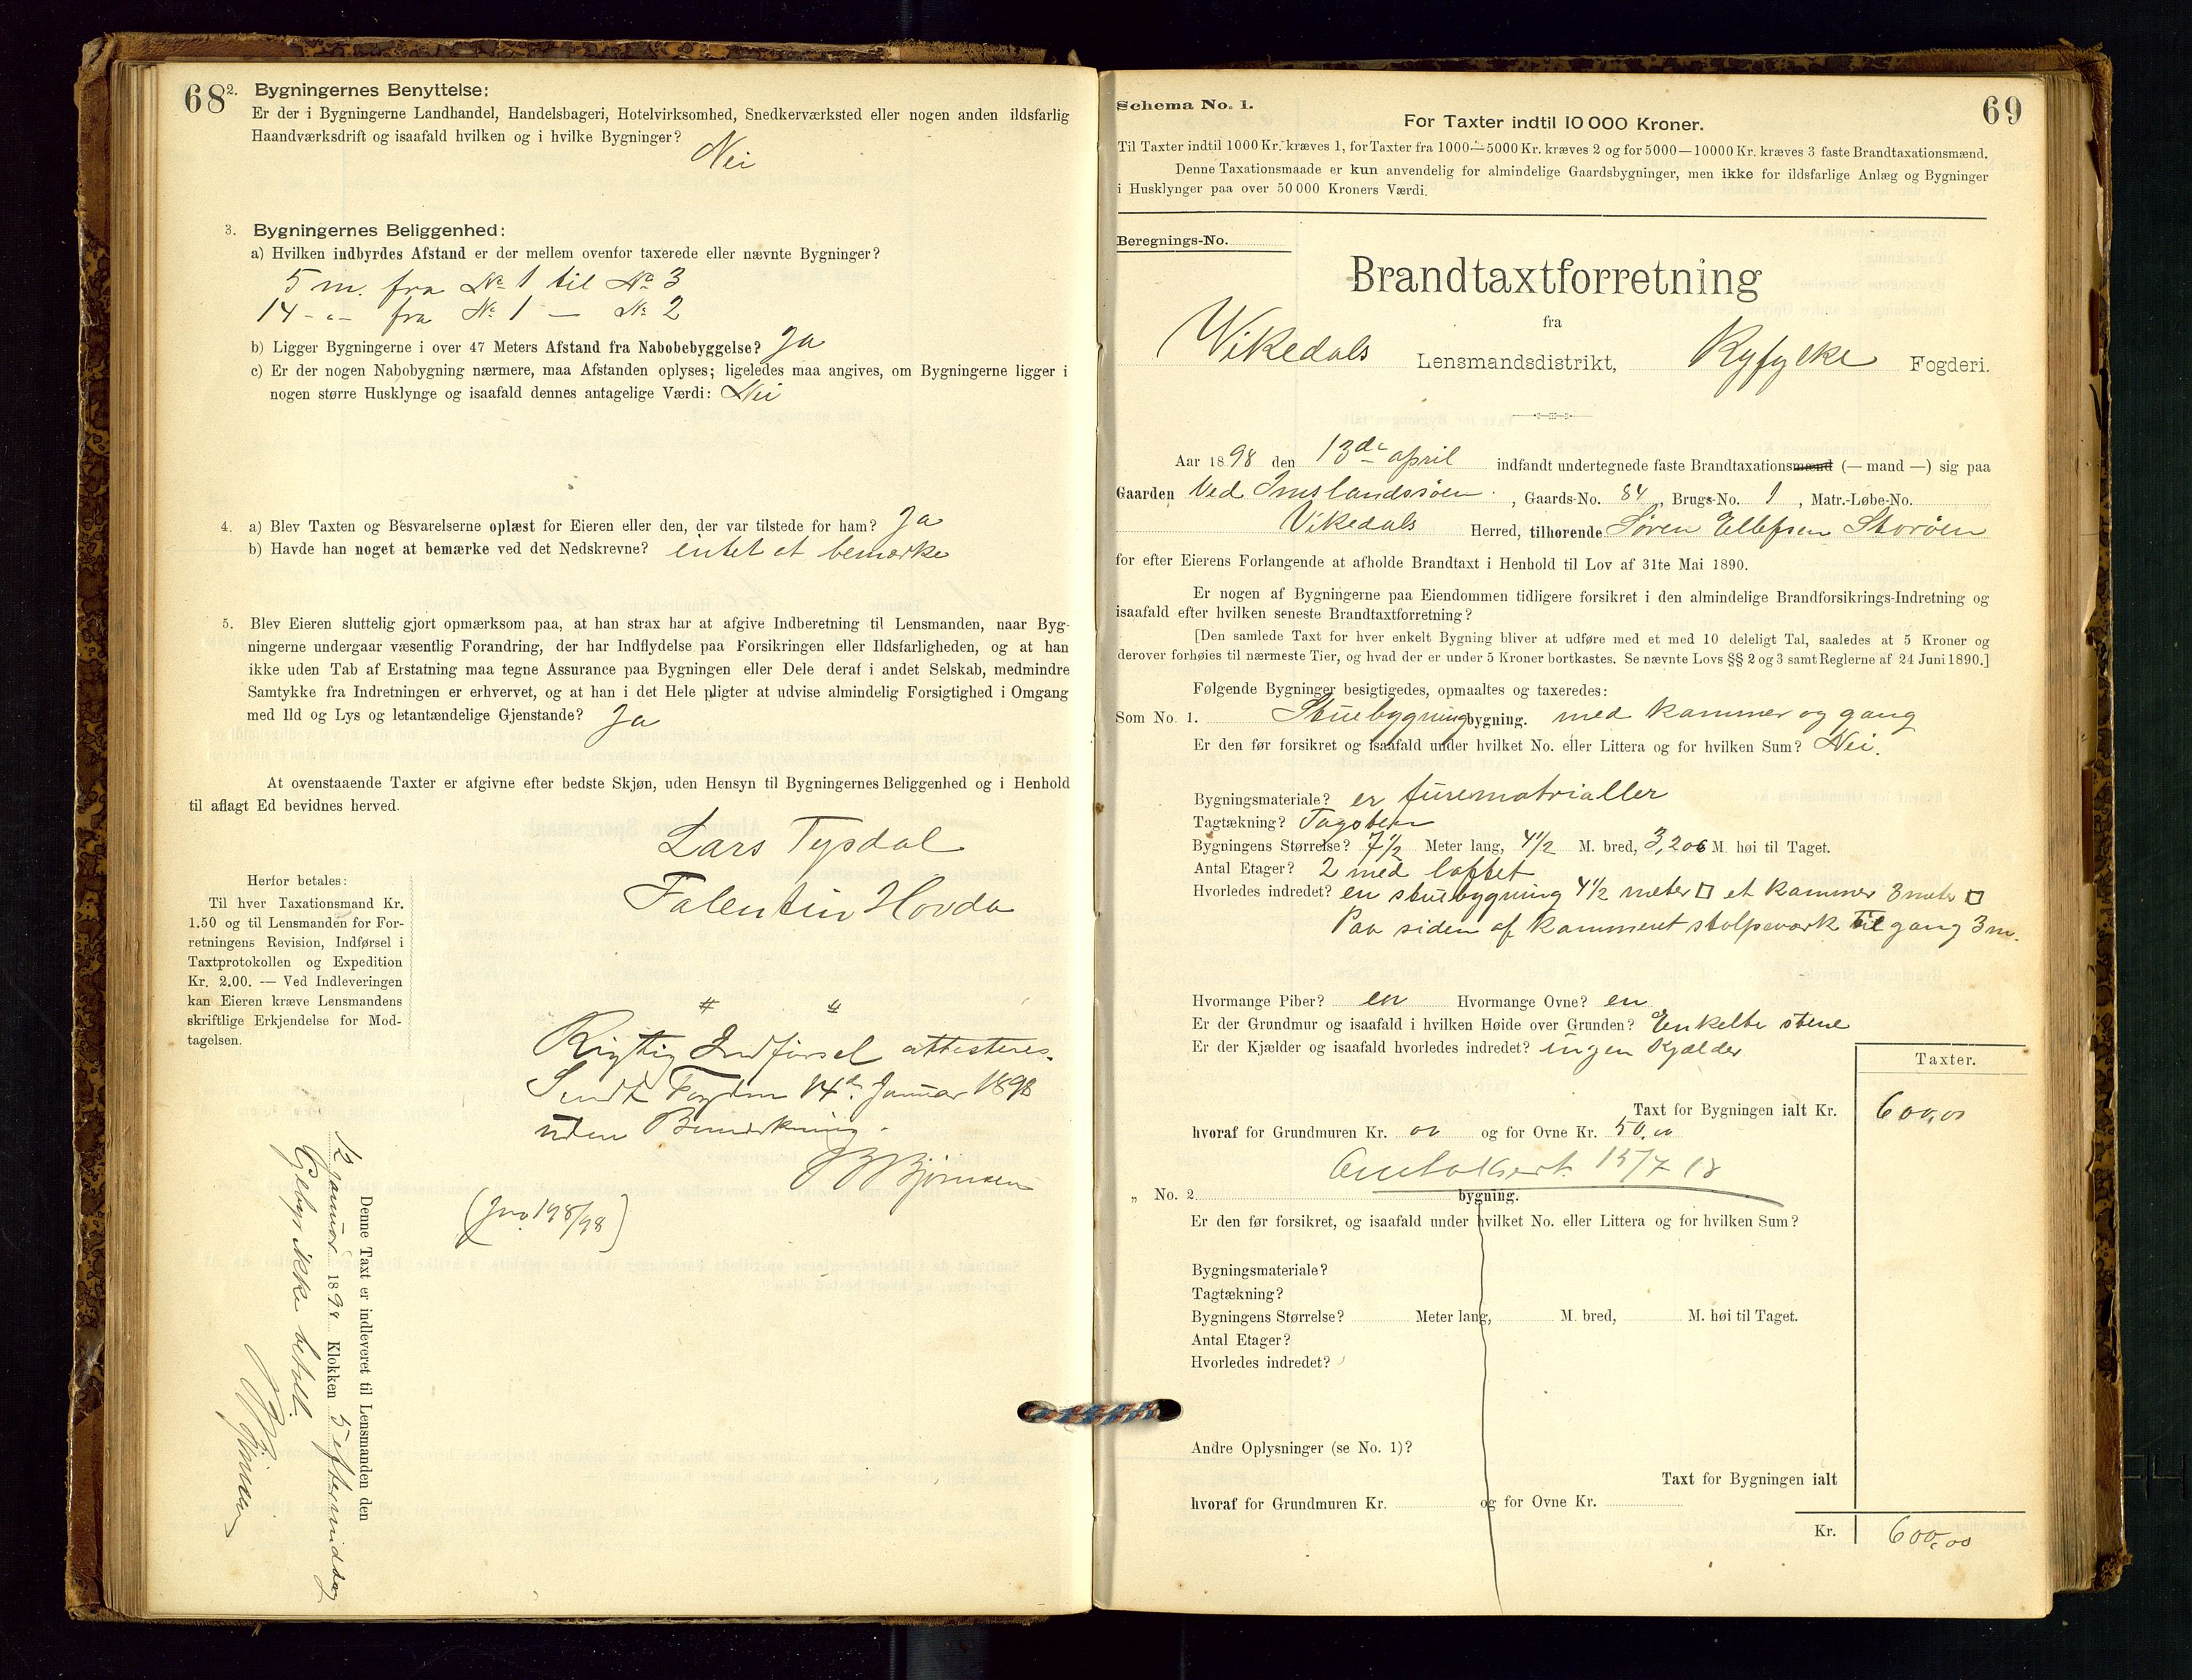 68
2. Bygningernes Benyttelse:
Er der i Bygningerne Landhandel, Handelsbageri, Hotelvirksomhed, Snedkerværksted eller nogen anden ildsfarlig
Haandværksdrift og isaafald hvilken og i hvilke Bygninger?
Nei
3. Bygningernes Beliggenhed:
a) Hvilken indbyrdes Afstand er der mellem ovenfor taxerede eller nævnte Bygninger?
5 m. fra No 1 til No 3
14 -"- fra No 1 — No 2
b) Ligger Bygningerne i over 47 Meters Afstand fra Nabobebyggelse? Ja
c) Er der nogen Nabobygning nærmere, maa Afstanden oplyses; ligeledes maa angives, om Bygningerne ligger i
nogen større Husklynge og isaafald dennes antagelige Værdi: Nei
4. a) Blev Taxten og Besvarelserne oplæst for Eieren eller den, der var tilstede for ham? Ja
b) Havde han noget at bemærke ved det Nedskrevne? intet at bemærke
5. Blev Eieren sluttelig gjort opmærksom paa, at han strax har at afgive Indberetning til Lensmanden, naar Byg-
ningerne undergaar væsentlig Forandring, der har Indflydelse paa Forsikringen eller Ildsfarligheden, og at han
ikke uden Tab af Erstatning maa tegne Assurance paa Bygningen eller Dele deraf i andet Selskab, medmindre
Samtykke fra Indretningen er erhvervet, og at han i det Hele pligter at udvise almindelig Forsigtighed i Omgang
med Ild og Lys og letantændelige Gjenstande? Ja
At ovenstaaende Taxter er afgivne efter bedste Skjøn, uden Hensyn til Bygningernes Beliggenhed og i Henhold
til aflagt Ed bevidnes herved.
Lars Tysdal
Falentin Hovda
Herfor betales:
Til hver Taxationsmand Kr.
1.50 og til Lensmanden for For-
retningens Revision, Indførsel i
Taxtprotokollen og Expedition
Kr. 2.00. — Ved Indleveringen
kan Eieren kræve Lensmandens
skriftlige Erkjendelse for Mod-
tagelsen.
Rigtig Indførsel attesteres.
Sendt Fogden 14de Januar 1898
uden Bemærkning.
Bjørnsen
(Jno 198/98)
Denne Taxt er indleveret til Lensmanden den
12 januar 1898 Klokken 5 eftermiddag
Gebyr ikke betalt.
Bjørnsen
69
Schema No. 1.
For Taxter indtil 10 000 Kroner.
Til Taxter indtil 1000 Kr. kræves 1, for Taxter fra 1000—5000 Kr. kræves 2 og for 5000—10000 Kr. kræves 3 faste Brandtaxationsmænd.
Denne Taxationsmaade er kun anvendelig for almindelige Gaardsbygninger, men ikke for ildsfarlige Anlæg og Bygninger
i Husklynger paa over 50 000 Kroners Værdi.
Beregnings-No.
Brandtaxtforretning
fra
Vikedals Lensmandsdistrikt, Ryfylke Fogderi.
Aar 1898 den 13de april indfandt undertegnede faste Brandtaxationsmænd (— mand —) sig paa
Gaarden Ved Imslandssøen, Gaards-No. 84, Brugs-No. 1, Matr.-Løbe-No.
Vikedals Herred, tilhørende Søren Ellefsen Storøen
for efter Eierens Forlangende at afholde Brandtaxt i Henhold til Lov af 31te Mai 1890.
Er nogen af Bygningerne paa Eiendommen tidligere forsikret i den almindelige Brandforsikrings-Indretning og
isaafald efter hvilken seneste Brandtaxtforretning?
[Den samlede Taxt for hver enkelt Bygning bliver at udføre med et med 10 deleligt Tal, saaledes at 5 Kroner og
derover forhøies til nærmeste Tier, og hvad der er under 5 Kroner bortkastes. Se nævnte Lovs §§ 2 og 3 samt Reglerne af 24 Juni 1890.]
Følgende Bygninger besigtigedes, opmaaltes og taxeredes:
Som No. 1. Stuebygning bygning. med kammer og gang
Er den før forsikret og isaafald under hvilket No. eller Littera og for hvilken Sum? Nei.
Bygningsmateriale? er furematrialler
Tagtækning? Tagsten
Bygningens Størrelse? 7 1/2 Meter lang, 4 1/2 M. bred, 3,20 M. høi til Taget.
Antal Etager? 2 med loftet
Hvorledes indredet? en stuebygning 4 1/2 meter □ et kammer 3 meter □
Paa siden af kammeret stolpevark til gang 3 m.
Hvormange Piber? en Hvormange Ovne? en
Er der Grundmur og isaafald i hvilken Høide over Grunden? Enkelte stene
Er der Kjælder og isaafald hvorledes indredet? ingen Kjælder
Taxter.
Taxt for Bygningen ialt Kr. 600,00
hvoraf for Grundmuren Kr. 00 og for Ovne Kr. 50,00
15/7 18
„ No. 2 bygning.
Er den før forsikret, og isaafald under hvilket No. eller Littera og for hvilken Sum?
Bygningsmateriale?
Tagtækning?
Bygningens Størrelse? Meter lang, M. bred, M. høi til Taget.
Antal Etager?
Hvorledes indredet?
Andre Oplysninger (se No. 1)?
Taxt for Bygningen ialt
hvoraf for Grundmuren Kr. og for Ovne Kr.
Kr. 600,00